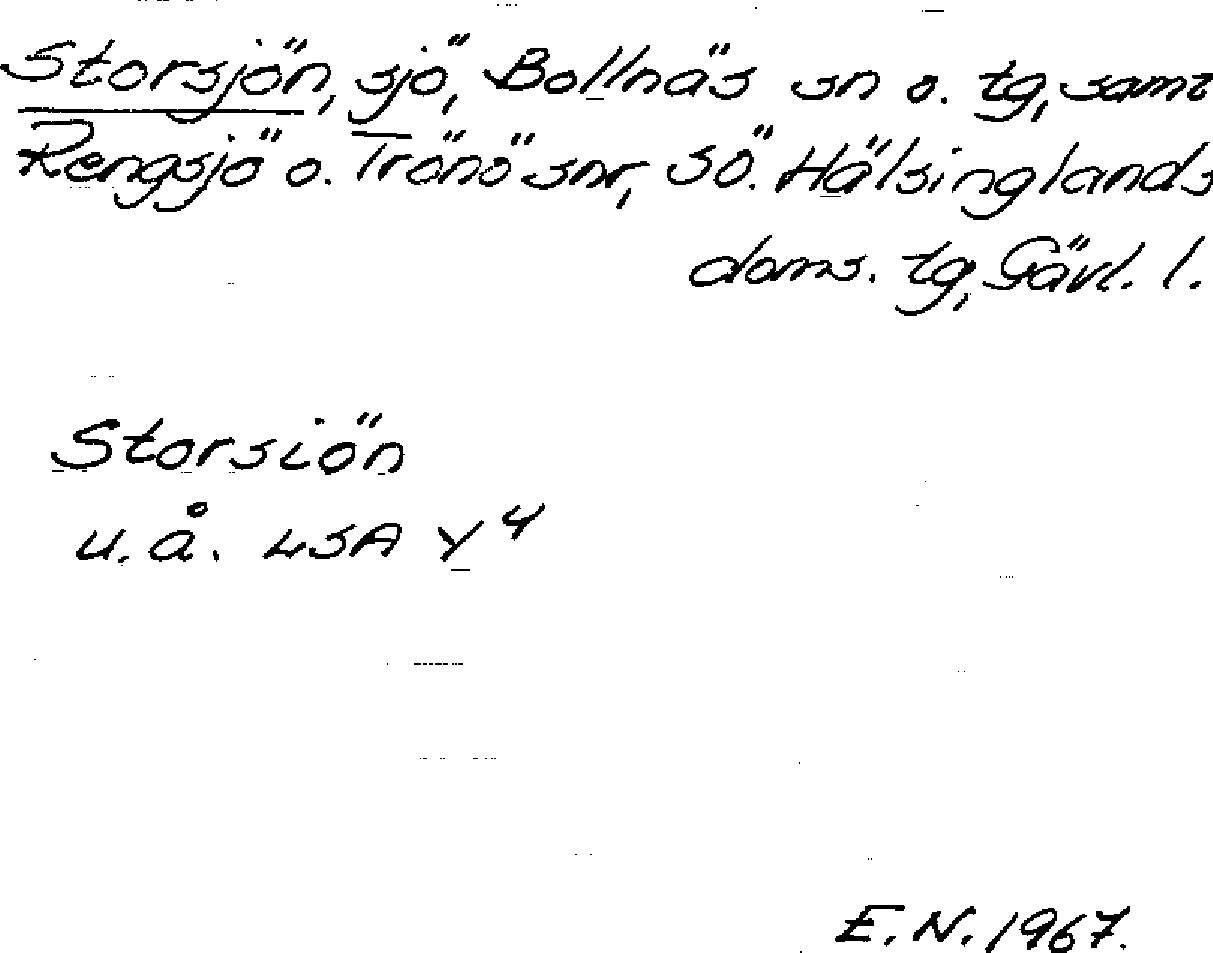 Storsjön, sjö, Bollnäs sn o. tg, samt
Rengsjö o. Trönö snr, Sö. Hälsinglands
doms. tg, Gävl. l.
Storsiön
u. å. LSA Y 4
E. N. 1967.